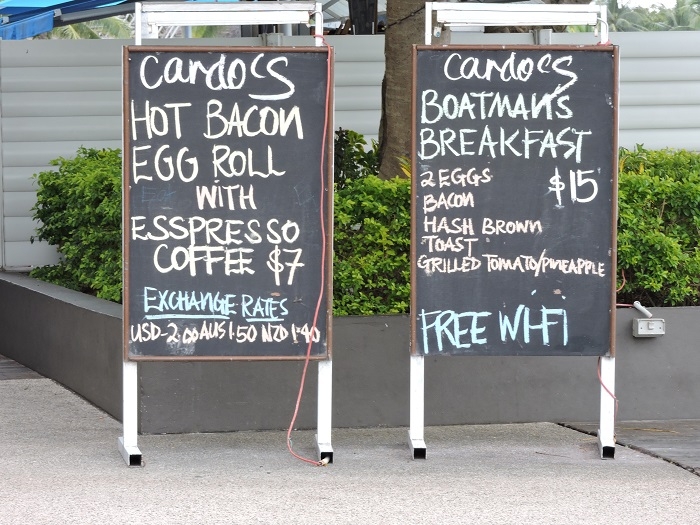 Cardo's
HOT BACON
EGG ROLL
WITH
ESSPRESSO
COFFEE $7
EXCHANGE RATES
USD-2.00 AUS 1.50 NZD 1.40
Cardo's
BOATMAN'S
BREAKFAST
2 EGGS $15
BACON
HASH BROWN
TOAST
GRILLED TOMATO/PINEAPPLE
FREE WI-FI